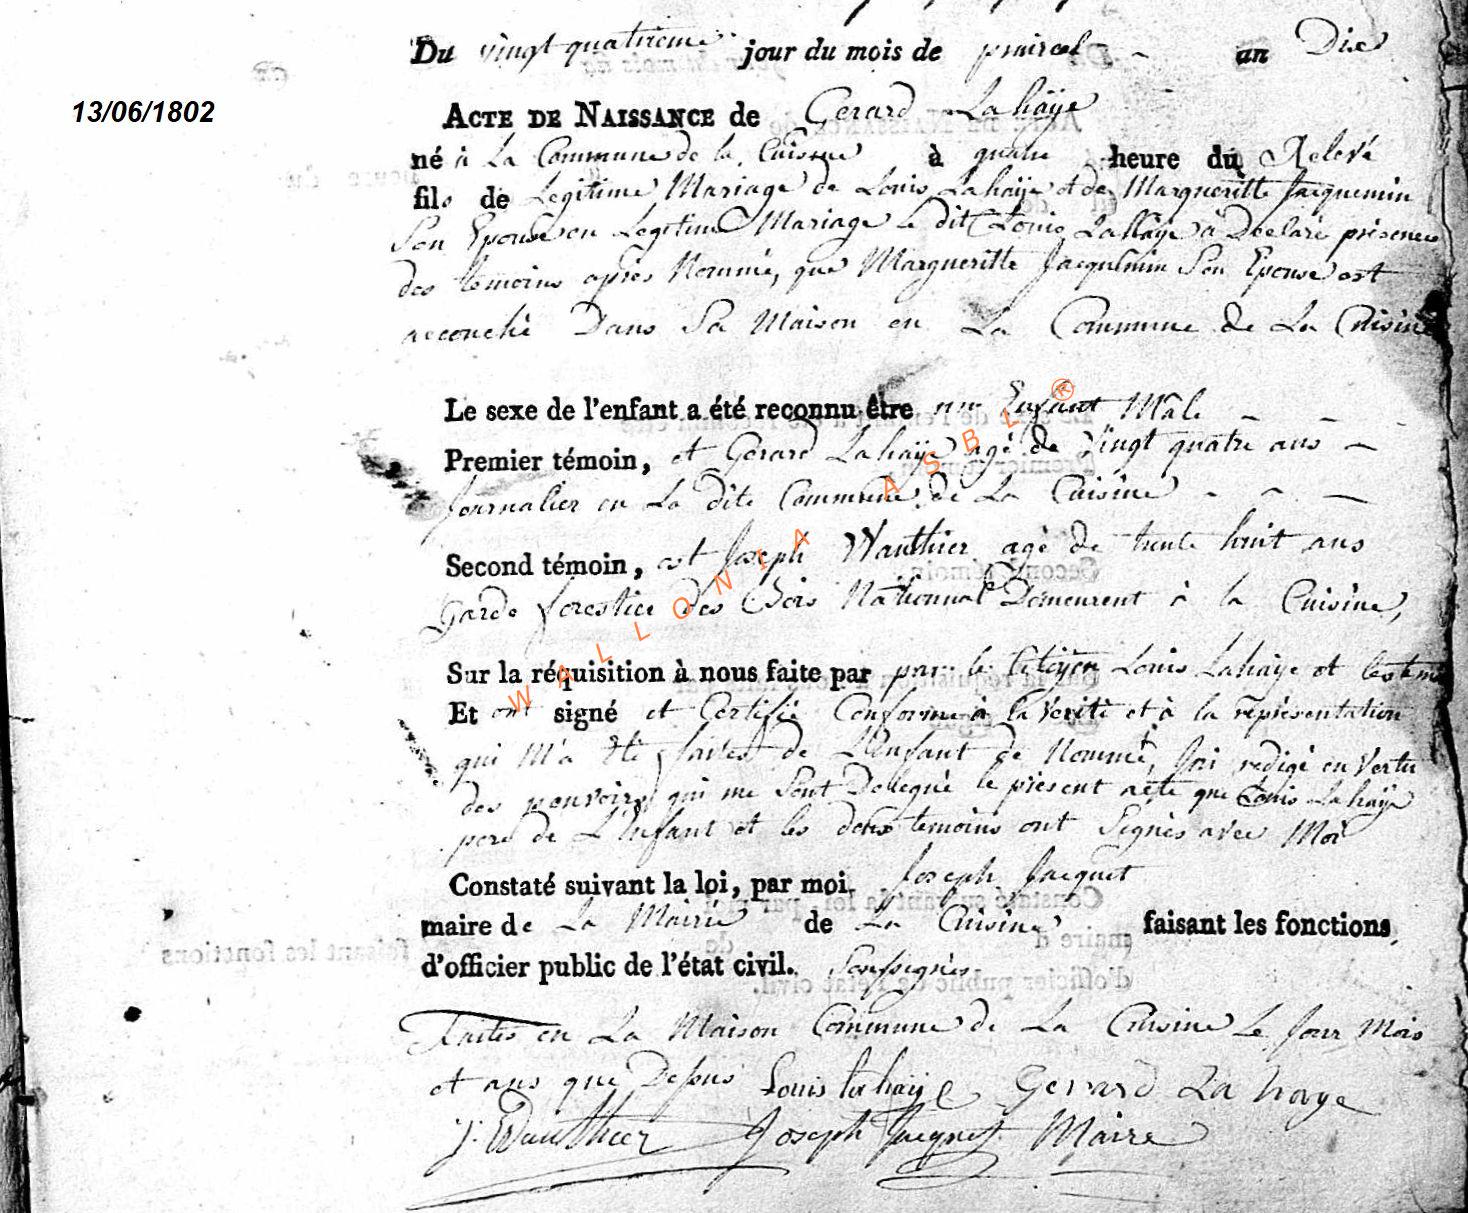 Du vingt quatrieme jour du mois de prairal - an Dix
13/06/1802
ACTE DE NAISSANCE de Gerard Lahaÿe
né à La Commune de la Cuisine à quatre heure du Relevé
fils de Legitime Mariage de Louis Lahaÿe et de Margueritte Jacquemin
Son Epouse en Legitime Mariage Le dit Louis Lahaÿe à Declaré présence
des temoins après Nommé, que Margueritte Jacquemin Son Epouse est
accouché Dans Sa Maison en La Commune de La Cuisine
Le sexe de l'enfant a été reconnu être un Enfant Mâle - -
Premier témoin, et Gerard Lahaÿe agé de Vingt quatre ans -
Journalier en La dite Commune de La Cuisine - - -
Second témoin, est Joseph Wauthier agé de trente huit ans
Garde forestier des Bois Nationnal Demeurent à la Cuisine,
Sur la réquisition à nous faite par par le Citoyen Louis Lahaÿe et les tem
Et ont signé et Certifié Conforme à la Verité et à la représentation
qui M'a été faites de L'Enfant de Nommé, J'ai redigé en Vertu
des pouvoirs qui me Sont Delegué le présent acte que Louis Lahaÿe
pere de L'Enfant et les deux temoins ont Signés avec Moi
Constaté suivant la loi, par moi. Joseph Jacquet
maire de La Mairie de La Cuisine faisant les fonctions
d'officier public de l'état civil. Soussignés
Faites en La Maison Commune de La Cuisine Le Jour Mois
et ans que Dessus Louis lahaÿe Gerard Lahaye
J. Wauthier Joseph Jacquet Maire
WALLONIA ASBL ®